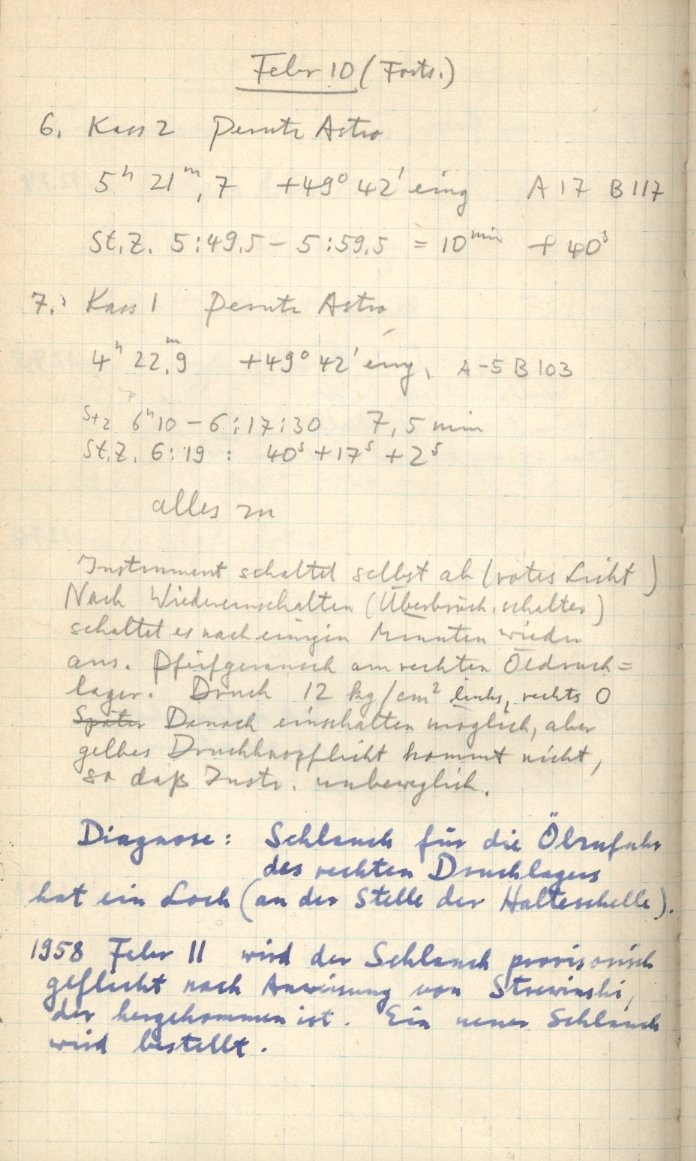 Febr 10 (Forts.)
6. Kass 2 Perutz Astro
5ʰ 21ᵐ,7 +49° 42' eing A 17 B 117
St.Z. 5:49,5 – 5:59,5 = 10ᵐⁱⁿ + 40ˢ
7. Kass 1 Perutz Astro
4ʰ 22ᵐ,9 +49° 42' eing. A -5 B 103
StZ 6ʰ10 – 6:17:30 7,5 min
St.Z. 6:19 : 40ˢ + 17ˢ + 2ˢ
alles zu
Instrument schaltet selbst ab (rotes Licht)
Nach Wiedereinschalten (Überbrück.schalter)
schaltet es nach einigen Minuten wieder
aus. Pfeifgeräusch am rechten Öldruck=
lager. Druck 12 kg/cm² links, rechts 0
Später Danach einschalten möglich, aber
gelbes Druckknopflicht kommt nicht,
so daß Instr. unbeweglich.
Diagnose: Schlauch für die Ölzufuhr
des rechten Drucklagers
hat ein Loch (an der Stelle der Halteschelle).
1958 Febr 11 wird der Schlauch provisorisch
geflickt nach Anweisung von Strewinski,
der hergekommen ist. Ein neuer Schlauch
wird bestellt.